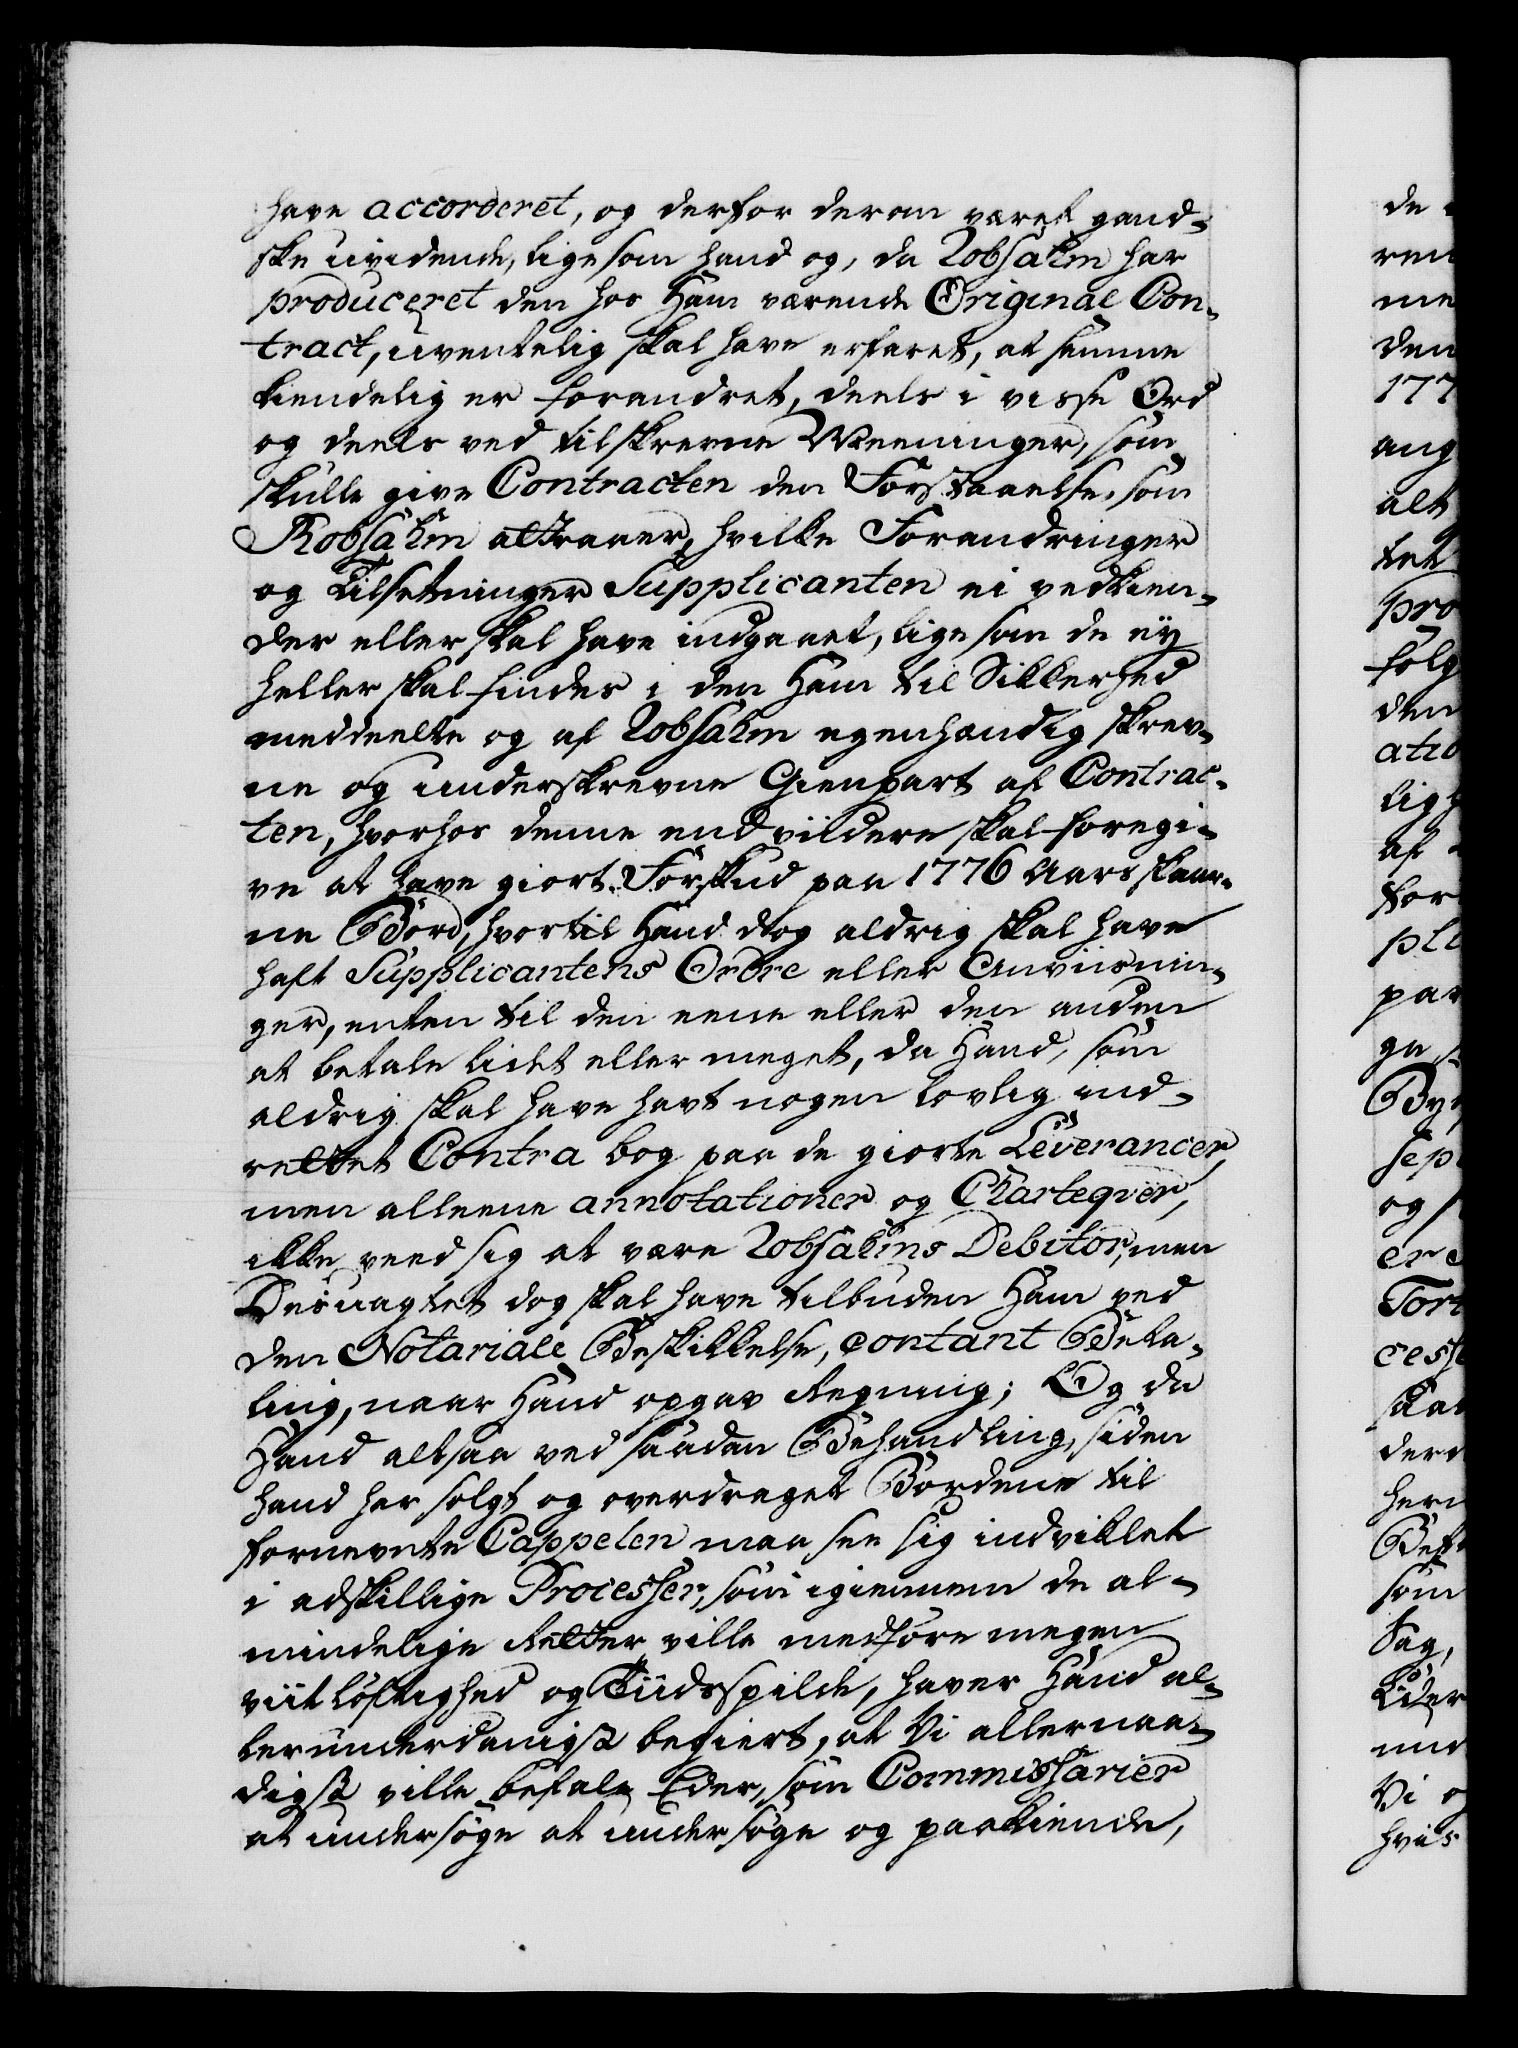 have accorderet, og derfor derom været gand-
ske uvidende, ligesom hand og, da Robsahm har
produceret den hos Ham værende Original Con-
tract, uventelig skal have erfaret, at samme
kiendelig er forandret, deels i visse Ord
og deels ved tilskrevne Meeninger, som
skulle give Contracten den Forstaaelse, som
Robsahm attraaer, hvilke Forandringer
og Tilsetninger Supplicanten ei vedkien-
der eller skal have indgaaet, ligesom de ey
heller skal findes i den Ham til Sikkerhed
meddeelte og af Robsahm egenhændig skrev-
ne og underskrevne Gienpart af Contrac-
ten, hvorhos denne endvidere skal foregi-
ve at have giort Forskud paa 1776 Aars skaar-
ne Bord, hvortil Hand dog aldrig skal have
haft Supplicantens Ordre eller Anviisnin-
ger, enten til den eene eller den anden
at betale lidt eller meget, da Hand, som
aldrig skal have havt nogen lovlig ind-
rettet Contra bog paa de giorte Leverancer,
men alleene annotationer og Charteqver,
ikke veed sig at være Robsahms Debitor, men
Desuagtet dog skal have tilbuden Ham ved
den Notariale Beskikkelse, contant Beta-
ling, naar Hand opgav Regning; Og da
Hand altsaa ved saadan Behandling, siden
hand har solgt og overdraget Bordene til
fornevnte Cappelen maa see sig indviklet
i adskillige Processer, som igiennem de al-
mindelige Retter ville medføre megen
viitløftighed og Tiidsspilde, haver Hand al-
lerunderdanigst begiert, at Vi allernaa-
digst ville befale Eder, som Commissarier
at undersøge at undersøge og paakiende,
de
ren
me
den
177
ang
alt
tet
pro
følg
den
atio
lig
af
for
pli
par
ga
By
Sept
og
er
Tor
cess
skal
der
her
Beff
som
Sag,
Eder
und
Vi
hvis